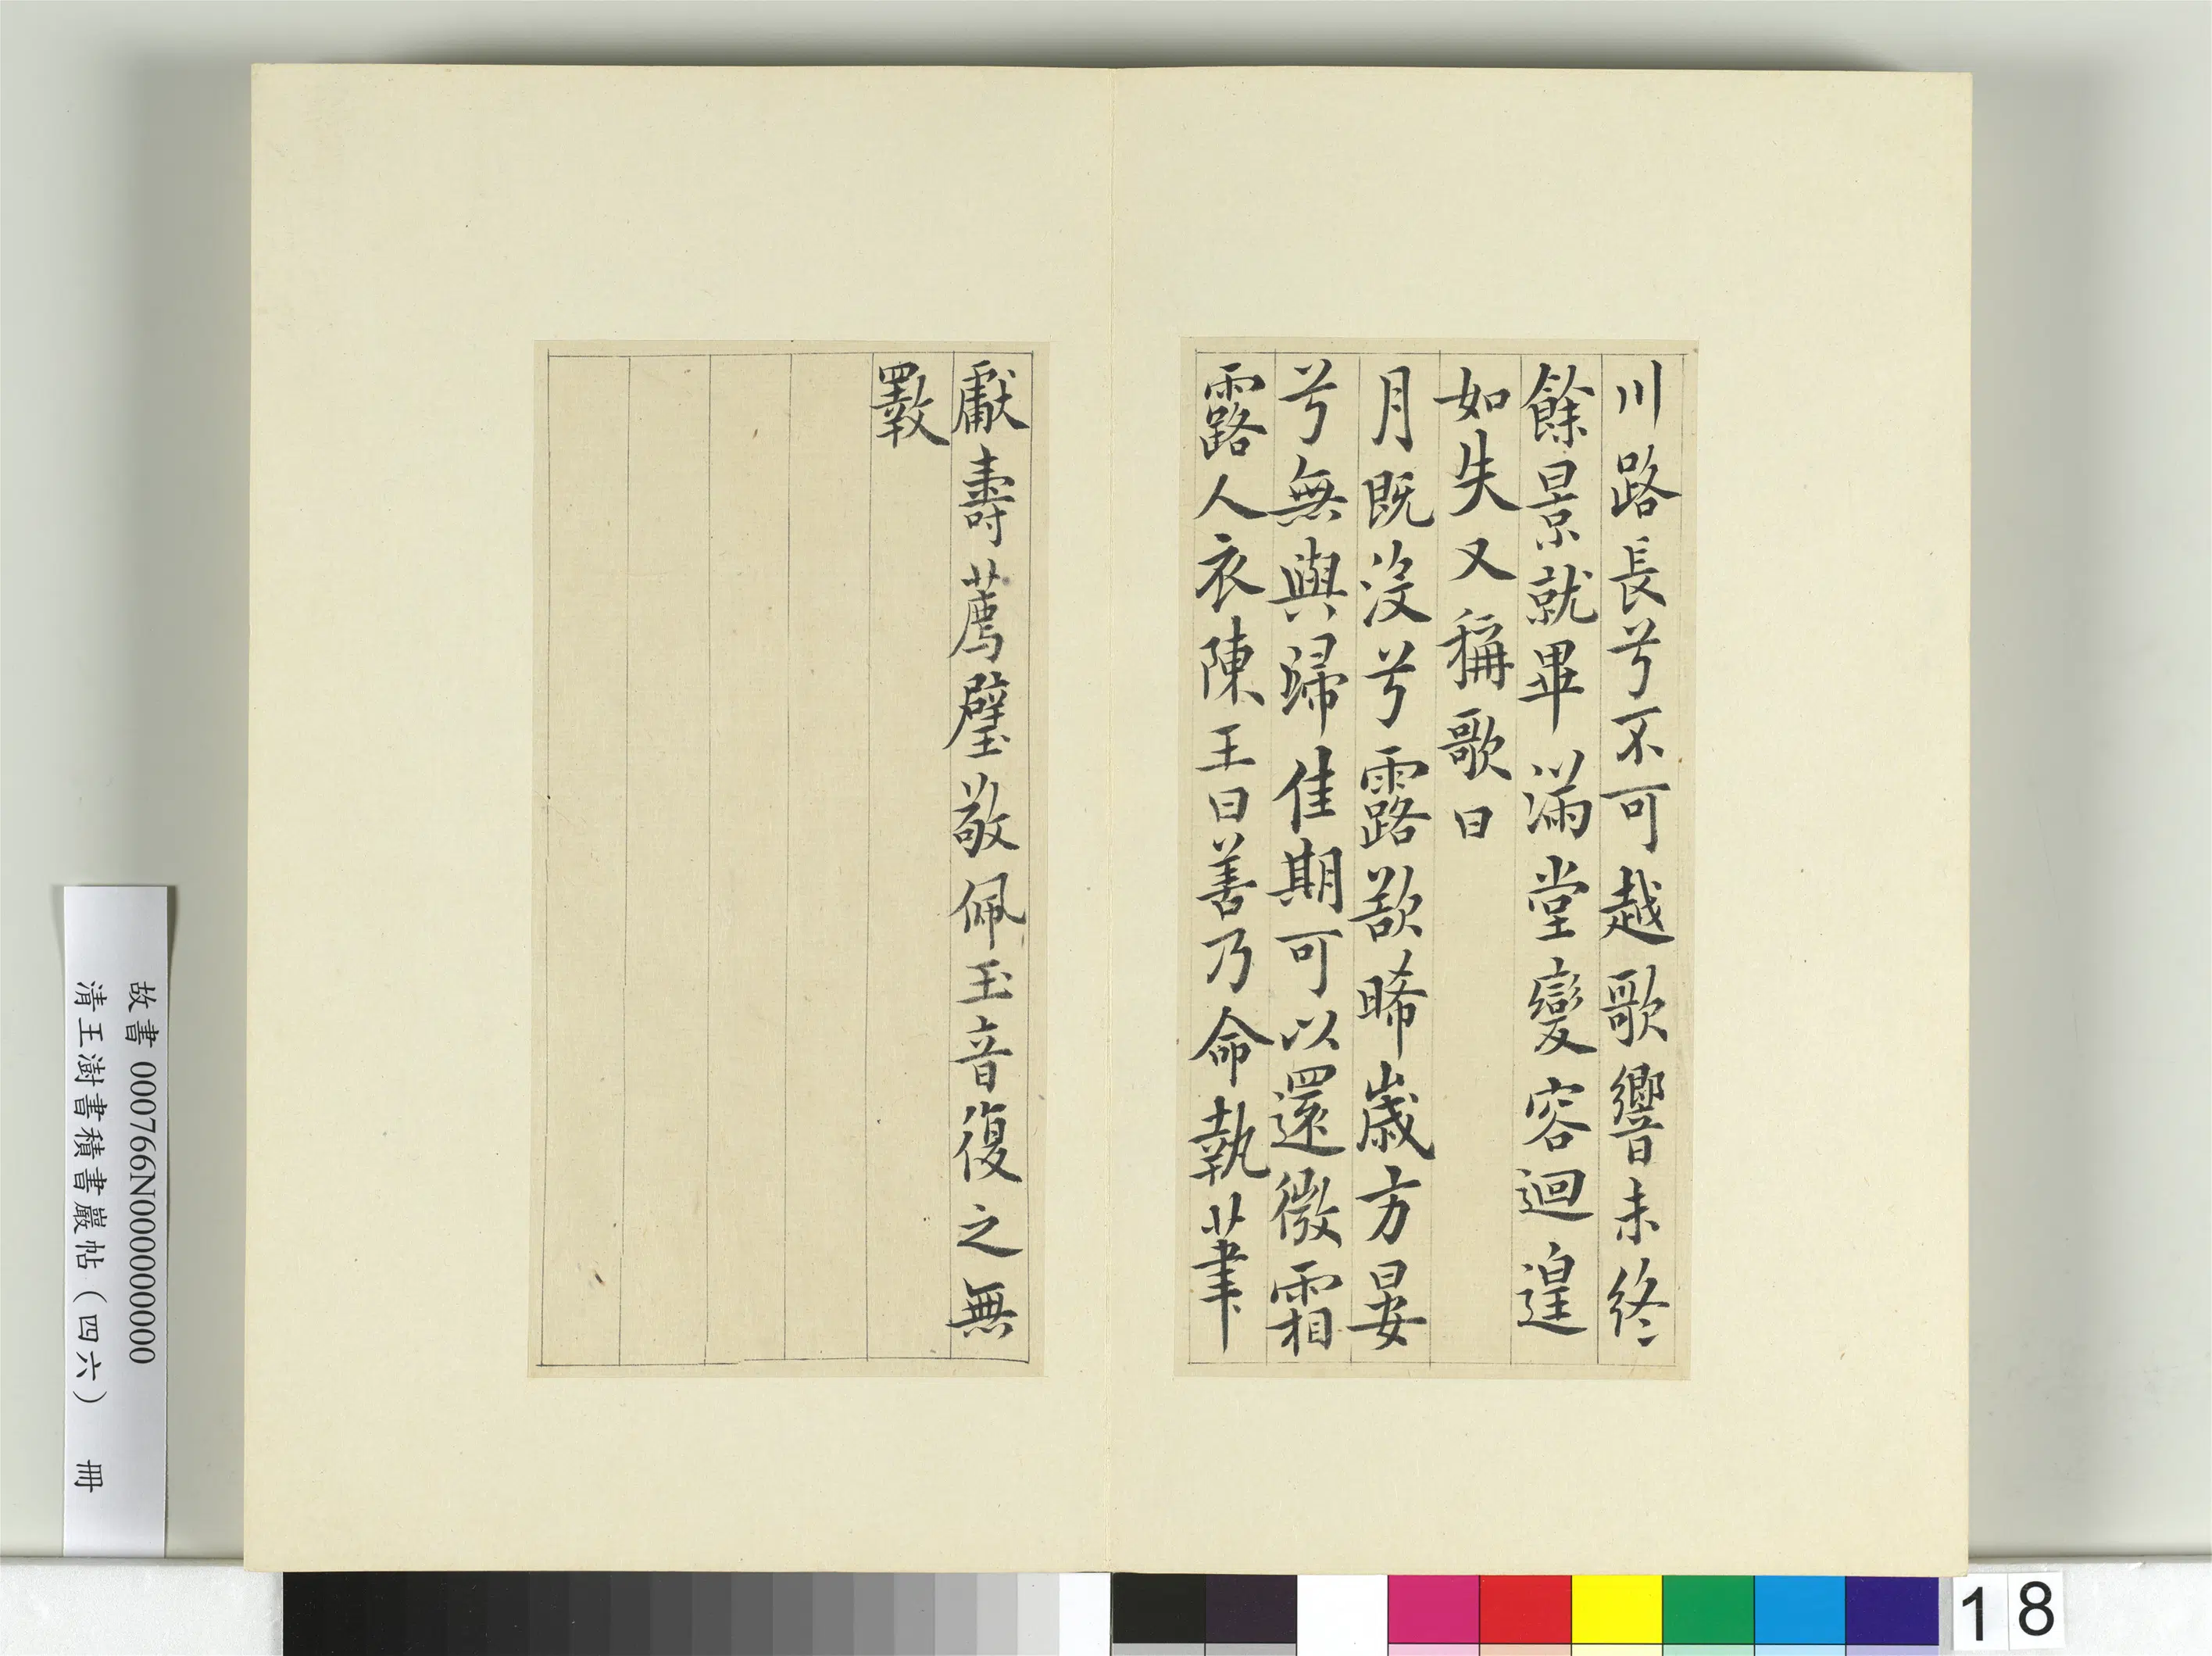 川路長兮不可越歌響未終
餘景就畢滿堂變容迴遑
如失又稱歌曰
月既沒兮露欲晞歲方晏
兮無與歸佳期可以還微霜
露人衣陳王曰善乃命執筆
獻壽薦璧敬佩玉音復之無
斁
故書 000766N000000000
清王澍書積書巖帖（四六） 冊
18